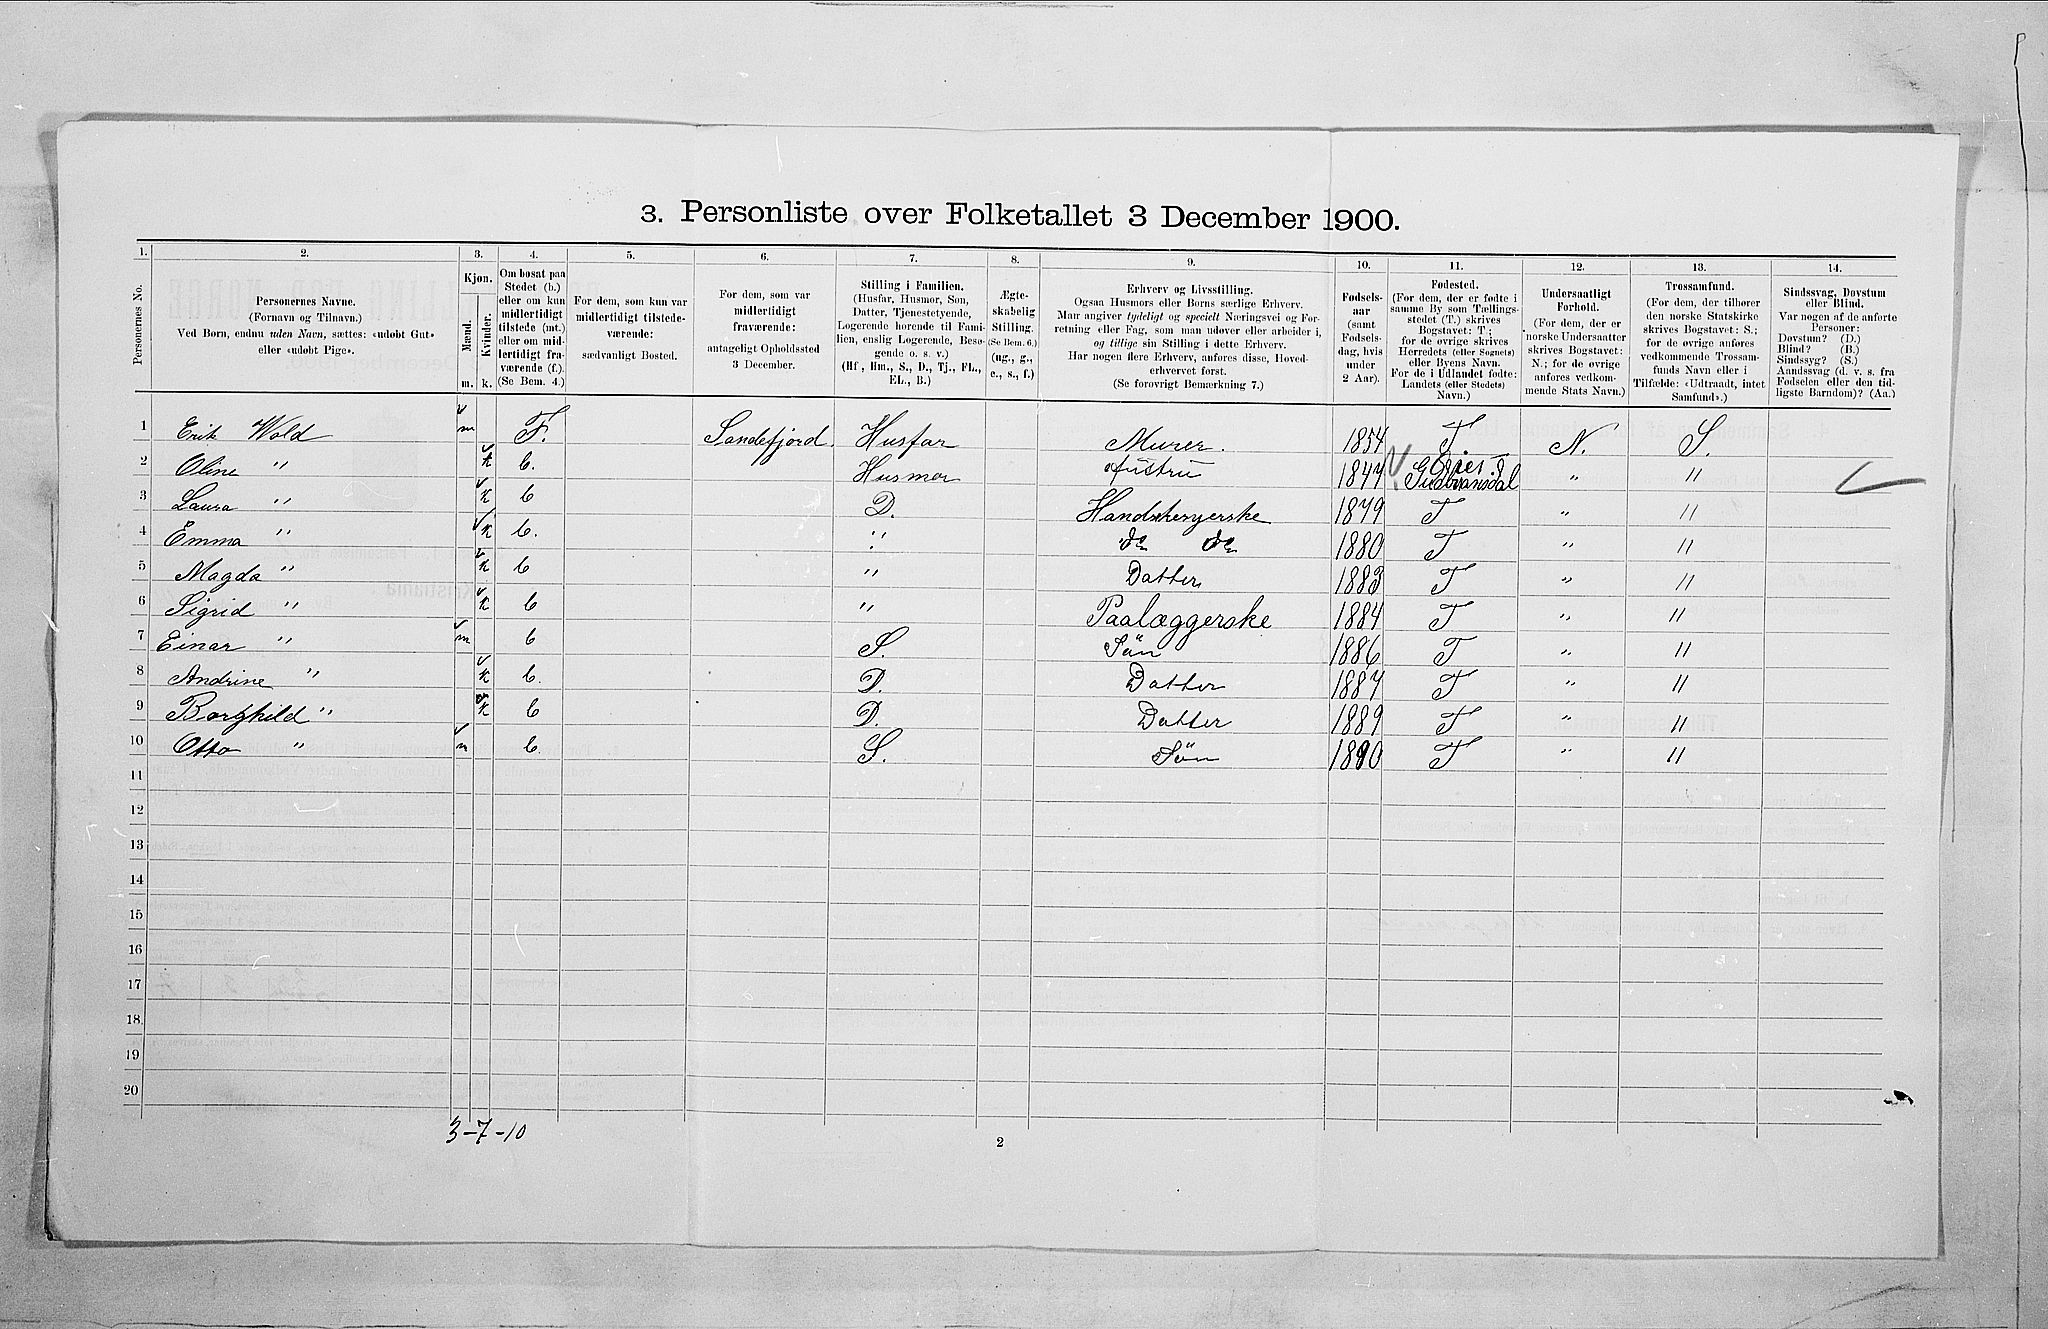 3. Personliste over Folketallet 3 December 1900.
1. 2. 3. 4. 5. 6. 7. 8. 9. 10. 11. 12. 13. 14.
Personernes No.
Personernes Navne.
(Fornavn og Tilnavn.)
Ved Børn, endnu uden Navn, sættes: «udøbt Gut»
eller «udøbt Pige».
Kjøn.
Mænd.
Kvinder.
m. k.
Om bosat paa
Stedet (b.)
eller om kun
midlertidigt
tilstede (mt.)
eller om mid-
lertidigt fra-
værende (f.).
(Se Bem. 4.)
For dem, som kun var
midlertidigt tilstede-
værende:
sædvanligt Bosted.
For dem, som var
midlertidigt
fraværende:
antageligt Opholdssted
3 December.
Stilling i Familien.
(Husfar, Husmor, Søn,
Datter, Tjenestetyende,
Logerende hørende til Fami-
lien, enslig Logerende, Besø-
gende o. s. v.)
(Hf, Hm., S., D., Tj., FL.,
EL., B.)
Ægte-
skabelig
Stilling.
(Se Bem. 6.)
(ug., g.,
e., s., f.)
Erhverv og Livsstilling.
Ogsaa Husmors eller Børns særlige Erhverv.
Man angiver tydeligt og specielt Næringsvei og For-
retning eller Fag, som man udøver eller arbeider i,
og tillige sin Stilling i dette Erhverv.
Har nogen flere Erhverv, anføres disse, Hoved-
erhvervet først.
(Se forøvrigt Bemærkning 7.)
Fødsels-
aar
(samt
Fødsels-
dag, hvis
under
2 Aar).
Fødested.
(For dem, der er fødte i
samme By som Tællings-
stedet (T.) skrives
Bogstavet: T.;
for de øvrige skrives
Herredets (eller Sognets)
eller Byens Navn.
For de i Udlandet fødte:
Landets (eller Stedets)
Navn.)
Undersaatligt
Forhold.
(For dem, der er
norske Undersaatter
skrives Bogstavet:
N.; for de øvrige
anføres vedkom-
mende Stats Navn.)
Trossamfund.
(For dem, der tilhører
den norske Statskirke
skrives Bogstavet: S.;
for de øvrige anføres
vedkommende Trossam-
funds Navn eller i
Tilfælde: «Udtraadt, intet
Samfund».)
Sindssvag, Døvstum
eller Blind.
Var nogen af de anførte
Personer:
Døvstum? (D.)
Blind? (B.)
Sindssyg? (S.)
Aandssvag (d. v. s. fra
Fødselen eller den tid-
ligste Barndom)? (Aa.)
1 Erik Wold m F. Sandefjord. Husfar Murer. 1854 T N. S.
2 Oline " k b. Husmor Hustru 1847 Gudbransdal " "
3 Laura " k b D. Handskesyerske 1879 T " "
4 Emma " k b. " do do 1880 T " "
5 Magda " k b " Datter 1883 T " "
6 Sigrid " k b " Paalæggerske 1884 T " "
7 Einar " m b S. Sön 1886 T " "
8 Andrine " k b. D. Datter 1887 T " "
9 Borghild " k b D. Datter 1889 T " "
10 Otto " m b. S. Sön 1890 T " "
11
12
13
14
15
16
17
18
19
20
3-7-10
2